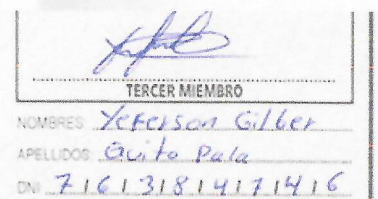 TERCER MIEMBRO
NOMBRES Yeferson Gilber
APELLIDOS Quito Pala
DNI 7|6|3|8|4|7|4|6